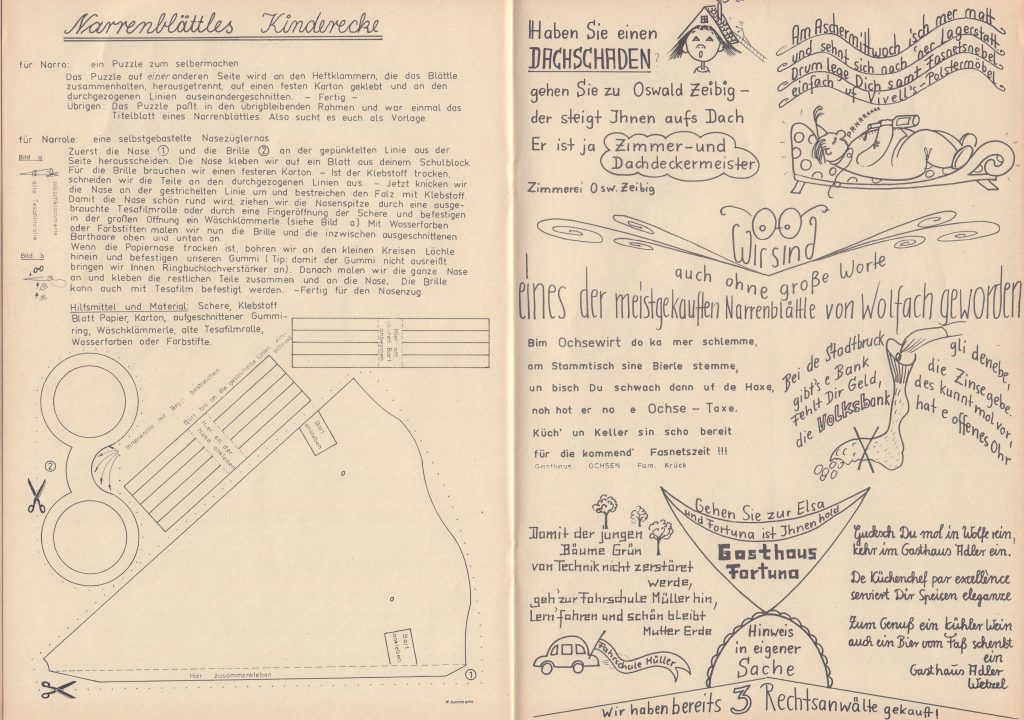 Narrenblättles Kinderecke
für Narro: ein Puzzle zum selbermachen
Das Puzzle auf einer anderen Seite wird an den Heftklammern, die das Blättle
zusammenhalten, herausgetrennt, auf einen festen Karton geklebt und an den
durchgezogenen Linien auseinandergeschnitten. – Fertig –
Übrigen: Das Puzzle paßt in den übrigbleibenden Rahmen und war einmal das
Titelblatt eines Narrenblättles. Also sucht es euch als Vorlage.
für Narrole: eine selbstgebastelte Nasezüglernas
Zuerst die Nase ① und die Brille ② an der gepünktelten Linie aus der
Seite herausscheiden. Die Nase kleben wir auf ein Blatt aus deinem Schulblock.
Für die Brille brauchen wir einen festeren Karton. – Ist der Klebstoff trocken,
schneiden wir die Teile an den durchgezogenen Linien aus. – Jetzt knicken wir
die Nase an der gestrichelten Linie um und bestreichen den Falz mit Klebstoff.
Damit die Nase schön rund wird, ziehen wir die Nasenspitze durch eine ausge-
brauchte Tesafilmrolle oder durch eine Fingeröffnung der Schere und befestigen
in der großen Öffnung ein Wäschklämmerle (siehe Bild a) Mit Wasserfarben
oder Farbstiften malen wir nun die Brille und die inzwischen ausgeschnittenen
Barthaare oben und unten an.
Wenn die Papiernase trocken ist, bohren wir an den kleinen Kreisen Löchle
hinein und befestigen unseren Gummi (Tip: damit der Gummi nicht ausreißt
bringen wir Innen Ringbuchlochverstärker an). Danach malen wir die ganze Nase
an und kleben die restlichen Teile zusammen und an die Nase. Die Brille
kann auch mit Tesafilm befestigt werden. –Fertig für den Nasenzug.
Bild a
Wäschklämmerle
alte Tesafilmrolle
Bild b
Hilfsmittel und Material: Schere, Klebstoff
Blatt Papier, Karton, aufgeschnittener Gummi-
ring, Wäschklämmerle, alte Tesafilmrolle,
Wasserfarben oder Farbstifte.
Hier am
oberen Bart
ankleben
Bart bis an die gestrichelte Linien ein-
Innenkante mit Bepp bestreichen
Hier an der
Nase ankleben
Bart
ankleben
②
Bart
ankleben
Hier zusammenkleben
①
Haben Sie einen
DACHSCHADEN?
gehen Sie zu Oswald Zeibig –
der steigt Ihnen aufs Dach
Er ist ja Zimmer-und
Dachdeckermeister
Zimmerei Osw. Zeibig
Am Aschermittwoch isch mer matt
und sehnt sich nach 'ner Lagerstatt
Drum lege Dich samt Fasnetsnebel
einfach uf Vivell's-Polstermöbel
Wir sind
auch ohne große Worte
eines der meistgekauften Narrenblättle von Wolfach geworden
Bim Ochsewirt do ka mer schlemme,
am Stammtisch sine Bierle stemme,
un bisch Du schwach dann uf de Haxe,
noh hot er no e Ochse – Taxe.
Küch' un Keller sin scho bereit
für die kommend' Fasnetszeit !!!
Gasthaus OCHSEN Fam. Krück
Bei de Stadtbruck
gibt's e Bank
Fehlt Dir Geld,
die Volksbank
gli denebe,
die Zinse gebe.
des kunnt mol vor,
hat e offenes Ohr
Damit der jungen
Bäume Grün
von Technik nicht zerstöret
werde,
geh' zur Fahrschule Müller hin,
Lern' fahren und schön bleibt
Mutter Erde
Fahrschule Müller
Gehen Sie zur Elsa
und Fortuna ist Ihnen hold
Gasthaus
Fortuna
Hinweis
in eigener
Sache
Wir haben bereits 3 Rechtsanwälte gekauft!
Gucksch Du mol in Wolfe rein,
kehr im Gasthaus Adler ein.
De Küchenchef par excellènce
serviert Dir Speisen eleganze
Zum Genuß ein kühler Wein
auch ein Bier vom Faß schenkt
ein
Gasthaus Adler
Wetzel